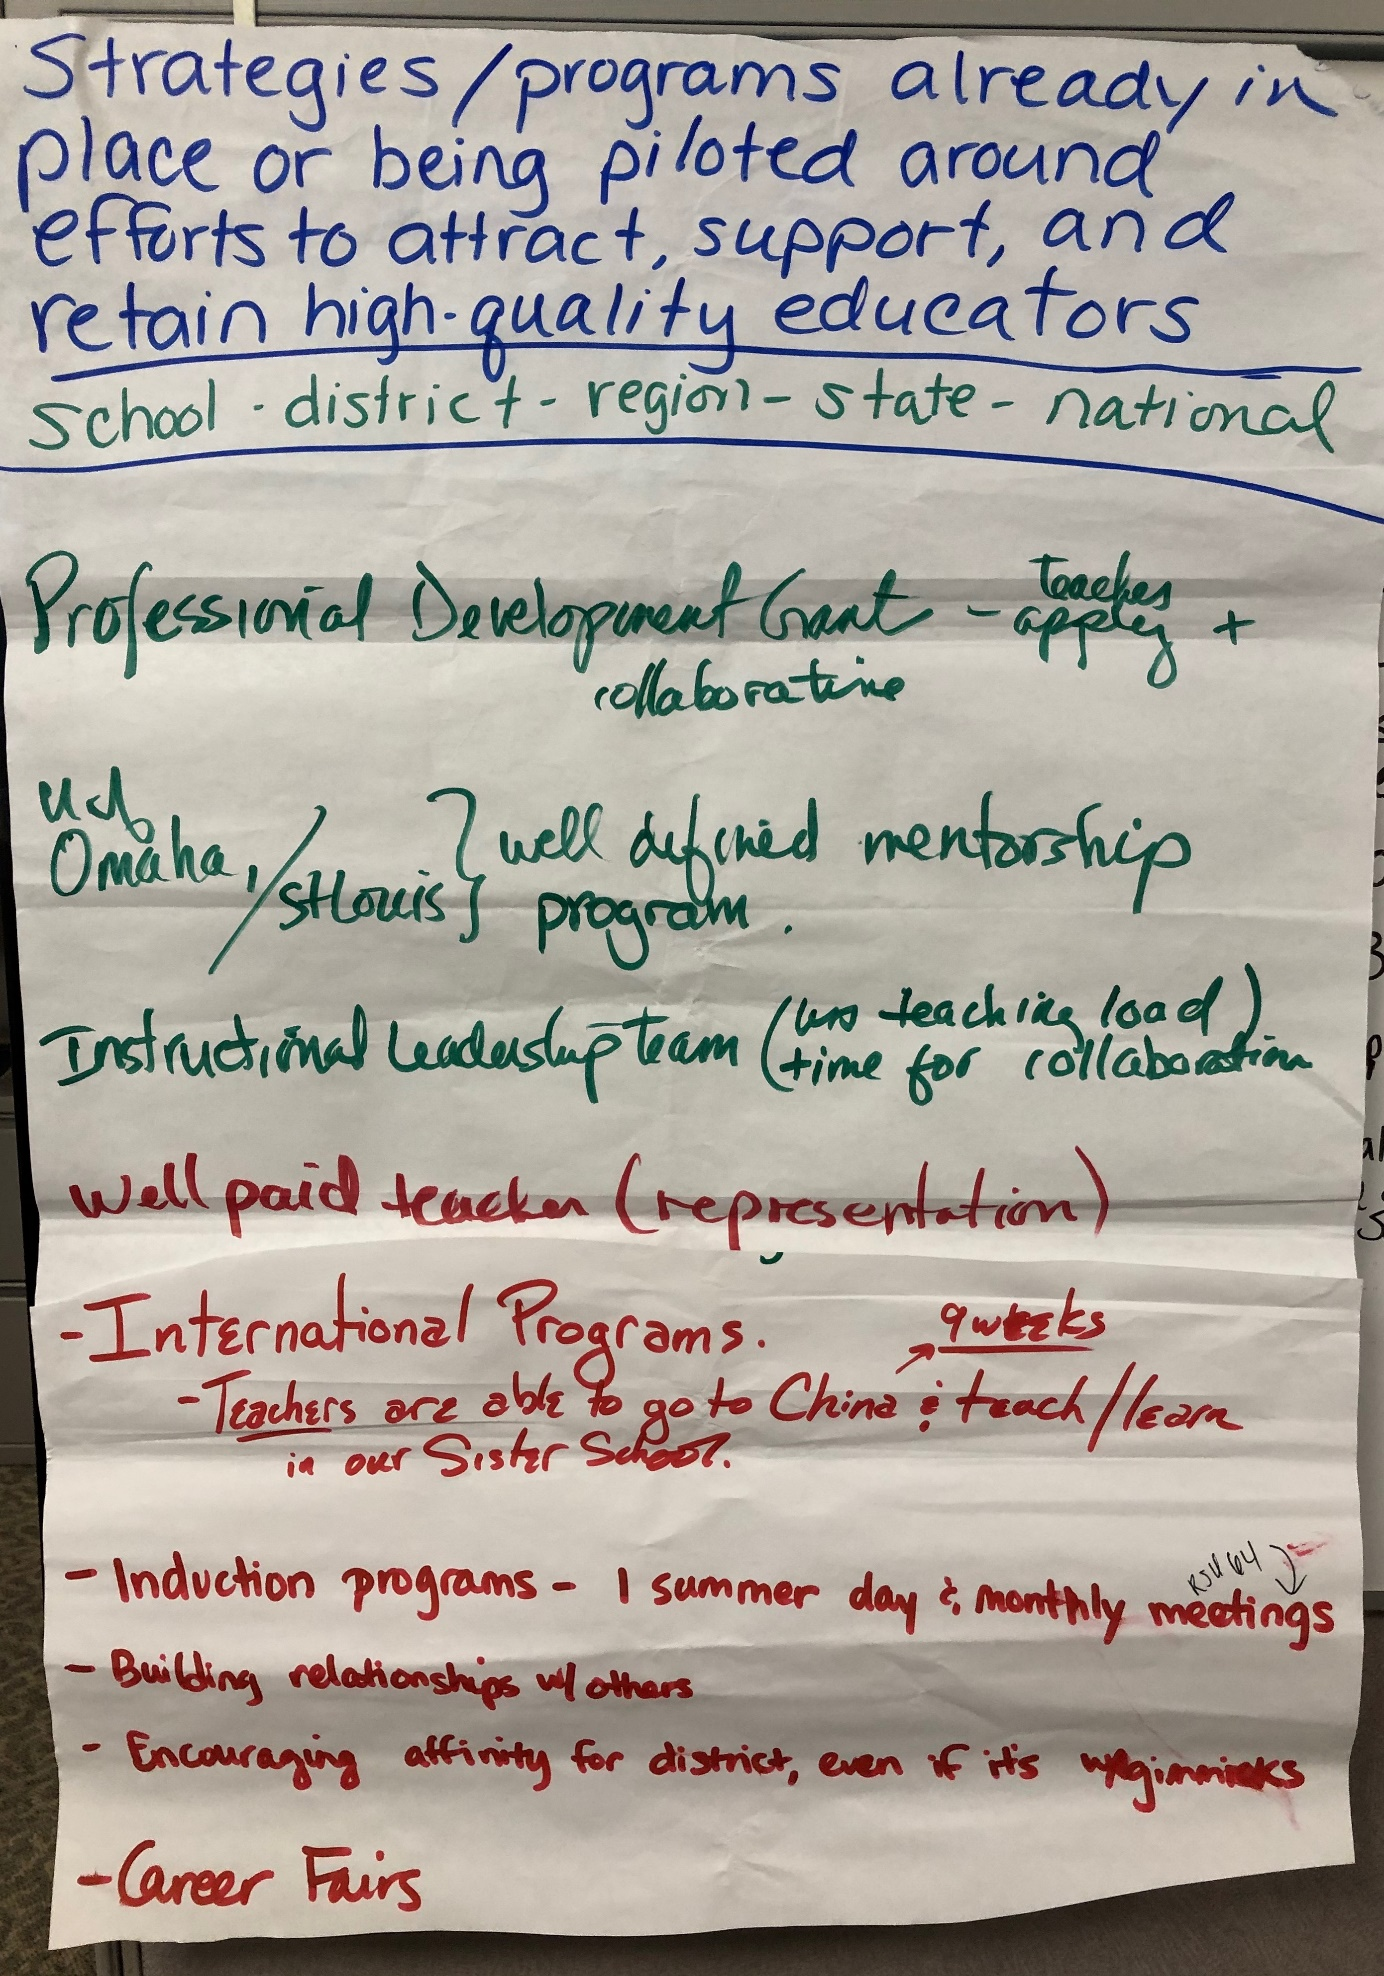 Strategies/programs already in
place or being piloted around
efforts to attract, support, and
retain high-quality educators
school - district - region - state - national
Professional Development Grant - teaches
apply +
collaborative
Omaha, / St Louis } well defined mentorship
program.
Instructional Leadership Team (less teaching load)
(time for collaboration
Well paid teacher (representation)
- International Programs. 9 weeks
- Teachers are able to go to China & teach/learn
in our Sister School.
RSU 64
- Induction programs - 1 summer day & monthly meetings
- Building relationships w/ others
- Encouraging affinity for district, even if it's w/gimmicks
- Career Fairs